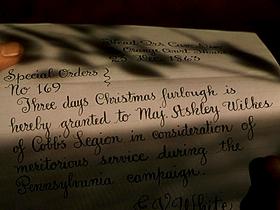 Head Qrs
Orange Court House
Dec 1863
Special Orders }
No 169
Three days Christmas furlough is
hereby granted to Maj. Ashley Wilkes
of Cobb's Legion in consideration of
meritorious service during the
Pennsylvania campaign.